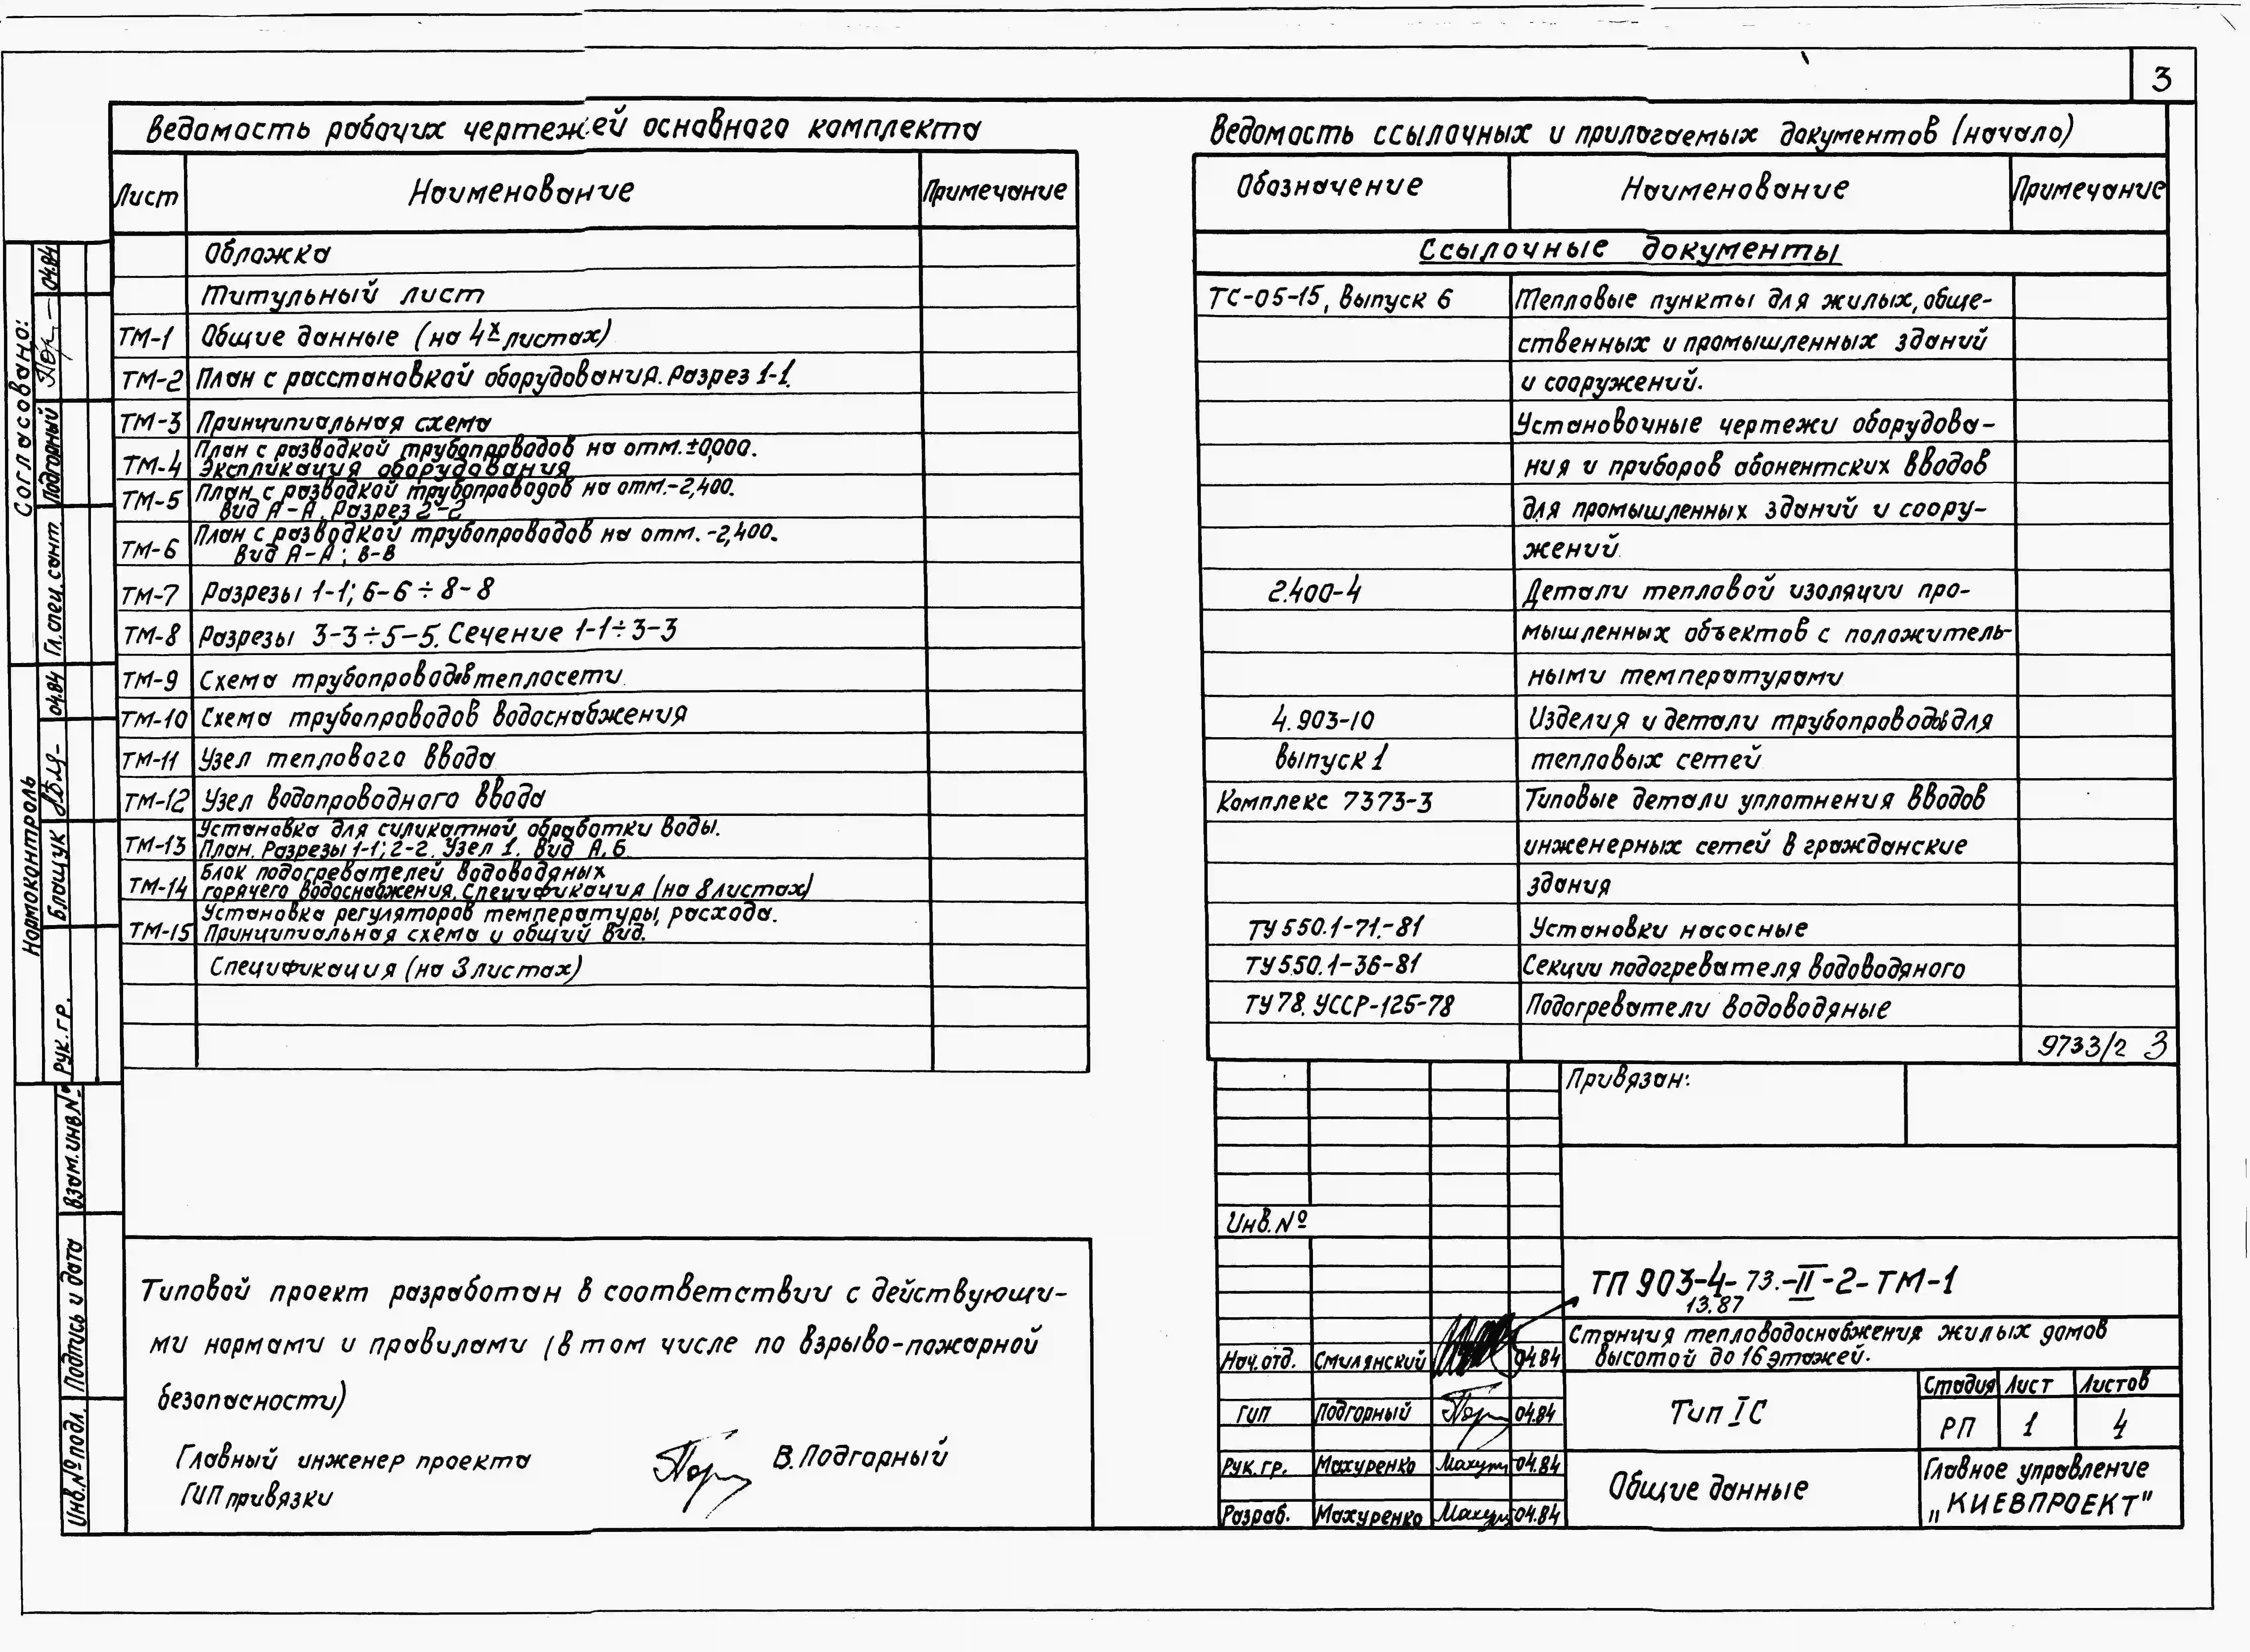 3
Ведомость рабочих чертежей основного комплекта
Лист Наименование Примечание
Обложка
Титульный лист
ТМ-1 Общие данные (на 4х листах)
ТМ-2 План с расстановкой оборудования. Разрез 1-1.
ТМ-3 Принципиальная схема
ТМ-4 План с разводкой трубопроводов на отм.±0,000.
Экспликация оборудования
ТМ-5 План с разводкой трубопроводов на отм.-2,400.
Вид А-А. Разрез 2-2
ТМ-6 План с разводкой трубопроводов на отм. -2,400.
Вид А-А; В-В
ТМ-7 Разрезы 1-1; 6-6÷8-8
ТМ-8 Разрезы 3-3÷5-5. Сечение 1-1÷3-3
ТМ-9 Схема трубопроводов теплосети
ТМ-10 Схема трубопроводов водоснабжения
ТМ-11 Узел теплового ввода
ТМ-12 Узел водопроводного ввода
ТМ-13 Установка для силикатной обработки воды.
План. Разрезы 1-1; 2-2. Узел 1. Вид А, Б
ТМ-14 Блок подогревателей водоводяных
горячего водоснабжения. Спецификация (на 8 листах)
ТМ-15 Установка регуляторов температуры, расхода.
Принципиальная схема и общий вид.
Спецификация (на 3 листах)
Ведомость ссылочных и прилагаемых документов (начало)
Обозначение Наименование Примечание
Ссылочные документы
ТС-05-15, Выпуск 6 Тепловые пункты для жилых, обще-
ственных и промышленных зданий
и сооружений.
Установочные чертежи оборудова-
ния и приборов абонентских вводов
для промышленных зданий и соору-
жений
2.400-4 Детали тепловой изоляции про-
мышленных объектов с положитель-
ными температурами
4.903-10 Изделия и детали трубопроводов для
выпуск 1 тепловых сетей
Комплекс 7373-3 Типовые детали уплотнения вводов
инженерных сетей в гражданские
здания
ТУ 550.1-71.-81 Установки насосные
ТУ 550.1-36-81 Секции подогревателя водоводяного
ТУ 78. УССР-125-78 Подогреватели водоводяные
9733/2 3
Привязан:
Инв.№
ТП 903-4-73.-II-2-ТМ-1
13.87
Станция тепловодоснабжения жилых домов
высотой до 16 этажей.
Нач.отд. Смилянский 04.84
ГИП Подгорный 04.84
Рук.гр. Махуренко 04.84
Разраб. Махуренко 04.84
Тип IС
Стадия Лист Листов
РП 1 4
Общие данные
Главное управление
„КИЕВПРОЕКТ"
Типовой проект разработан в соответствии с действующи-
ми нормами и правилами (в том числе по взрыво-пожарной
безопасности)
Главный инженер проекта В. Подгорный
ГИП привязки
Согласовано:
Гл.спец.сант. Подгорный 04.84
Нормоконтроль
Рук.гр. Блащук 04.84
Взам.инв.№
Подпись и дата
Инв.№подл.